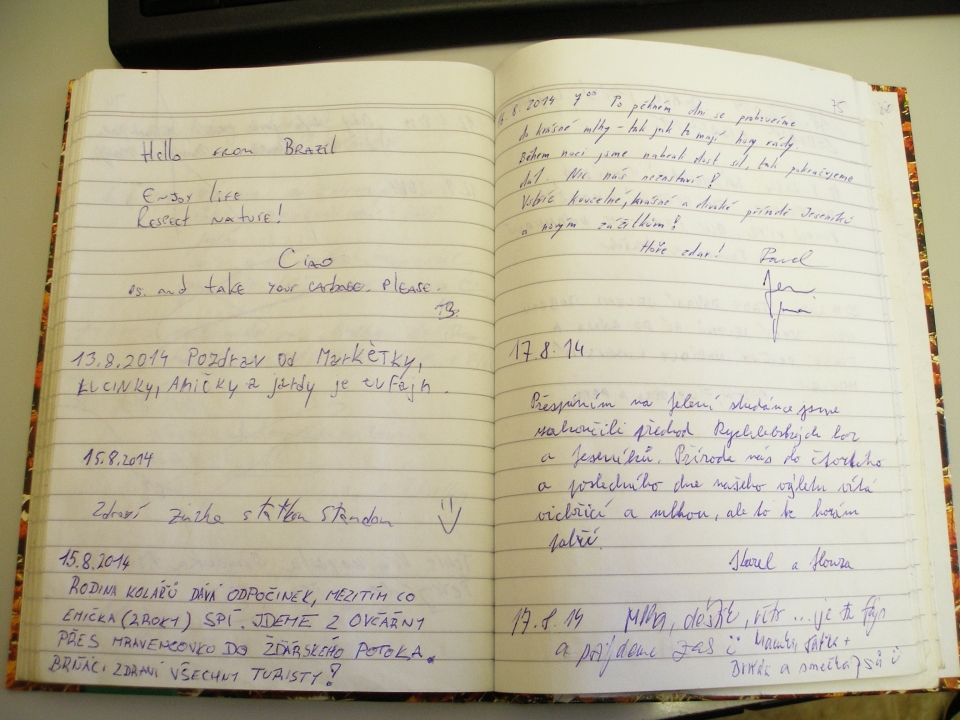 Hello from Brazil
Enjoy life
Respect nature!
Ciao
ps. and take your garbage. Please.
13.8.2014 Pozdrav od Markétky,
Lucinky, Aničky a jardy je tu fajn.
15.8.2014
Zdraví Zuzka s tátkou Standou
15.8.2014
RODINA KOLÁŘŮ DÁVÁ ODPOČINEK, MEZITÍM CO
EMIČKA (2 ROKY) SPÍ. JDEME Z OVČÁRNY
PŘES MRAVENCOVKO DO ŽĎÁRSKÉHO POTOKA.
BRŇÁCI ZDRAVÍ VŠECHNY TURISTY!
75
8.2014 7°° Po pěkném dni se probouzíme
do krásné mlhy - tak jak to mají hory rády
Během noci jsme nabrali dost sil, tak pokračujeme
dál. Nic nás nezastaví!
Vstříc kouzelné, krásné a divoké přírodě Jeseníků
a novým zážitkům!
Hoře zdar! Pavel
17.8.14
Přespáním na Jelení studánce jsme
zakončili přechod Rychlebských hor
a Jeseníků. Příroda nás do čtvrtého
a posledního dne našeho výletu vítá
vichřicí a mlhou, ale to k horám
patří.
Karel a Honza
17.8.14 Mlha, deštík, vítr... je tu fajn
a přijdeme zas
a smečka psů